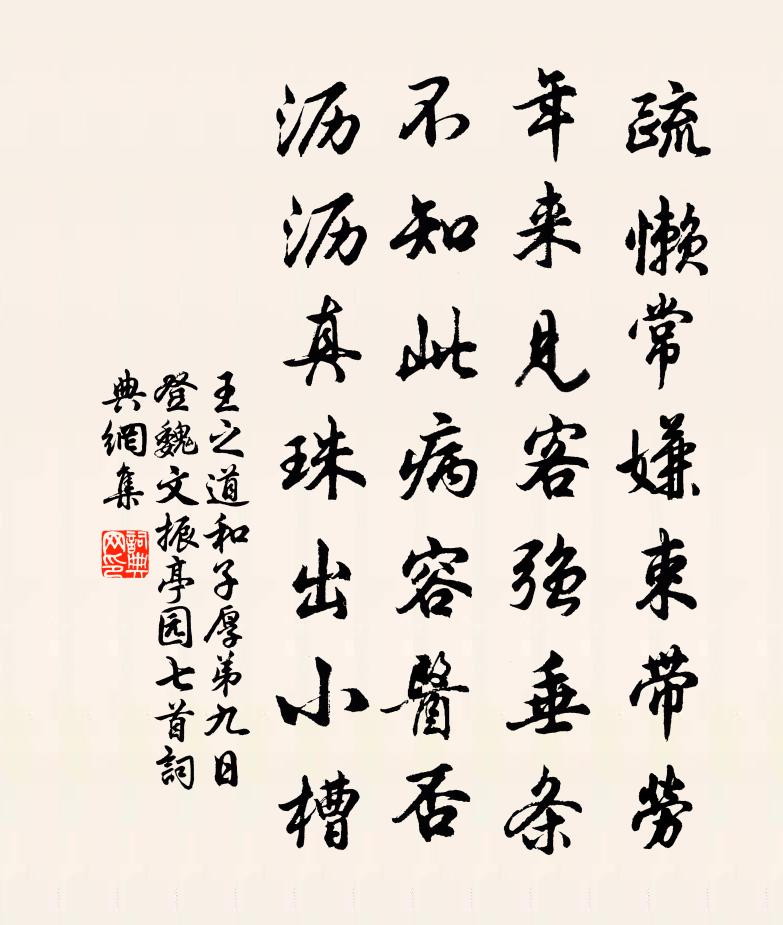 疏懶常嫌束带勞
年来見客强垂条
不知此病容醫否
沥沥真珠出小槽
王之道和子厚弟九日
登魏文振亭园七首詞
典網集
詞典
网印